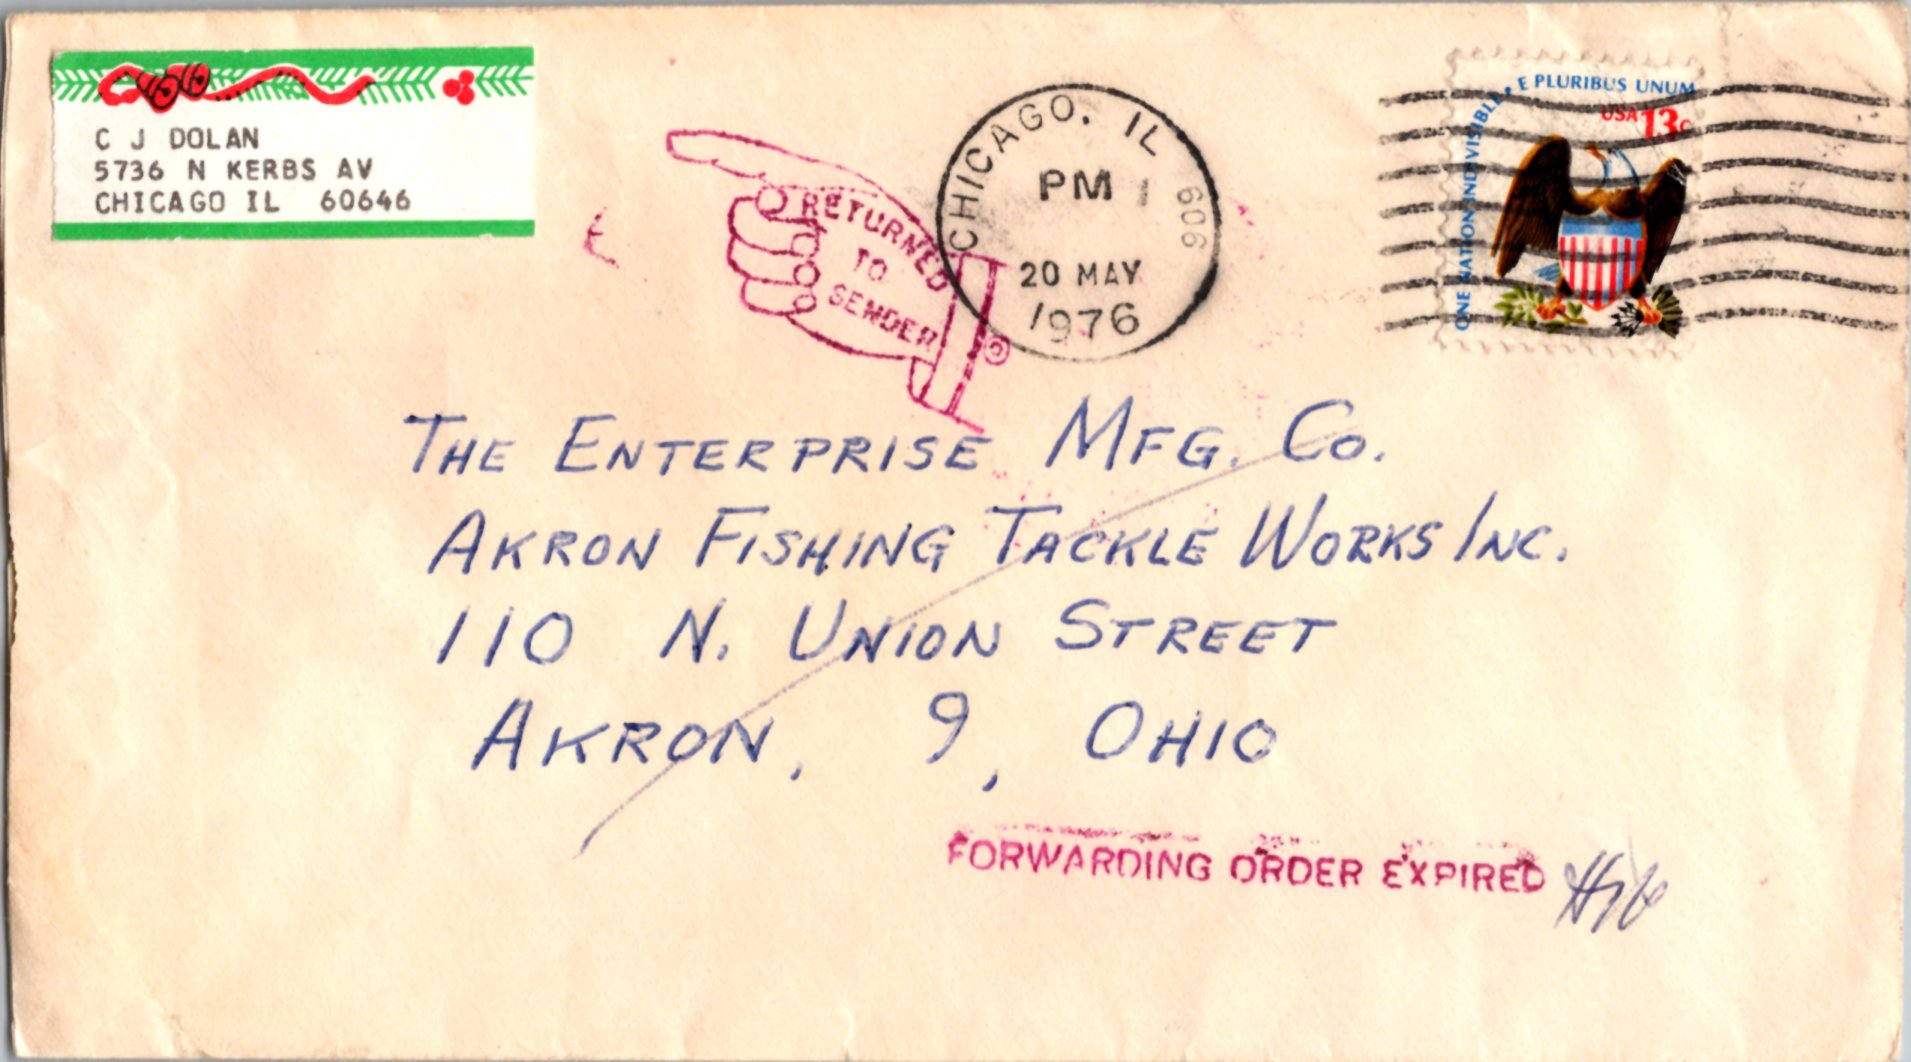 C J DOLAN
5736 N KERBS AV
CHICAGO IL 60646
RETURNED
TO
SENDER
CHICAGO, IL 606
PM
20 MAY
1976
ONE NATION INDIVISIBLE • E PLURIBUS UNUM
USA 13c
THE ENTERPRISE MFG. CO.
AKRON FISHING TACKLE WORKS INC.
110 N. UNION STREET
AKRON, 9, OHIO
FORWARDING ORDER EXPIRED